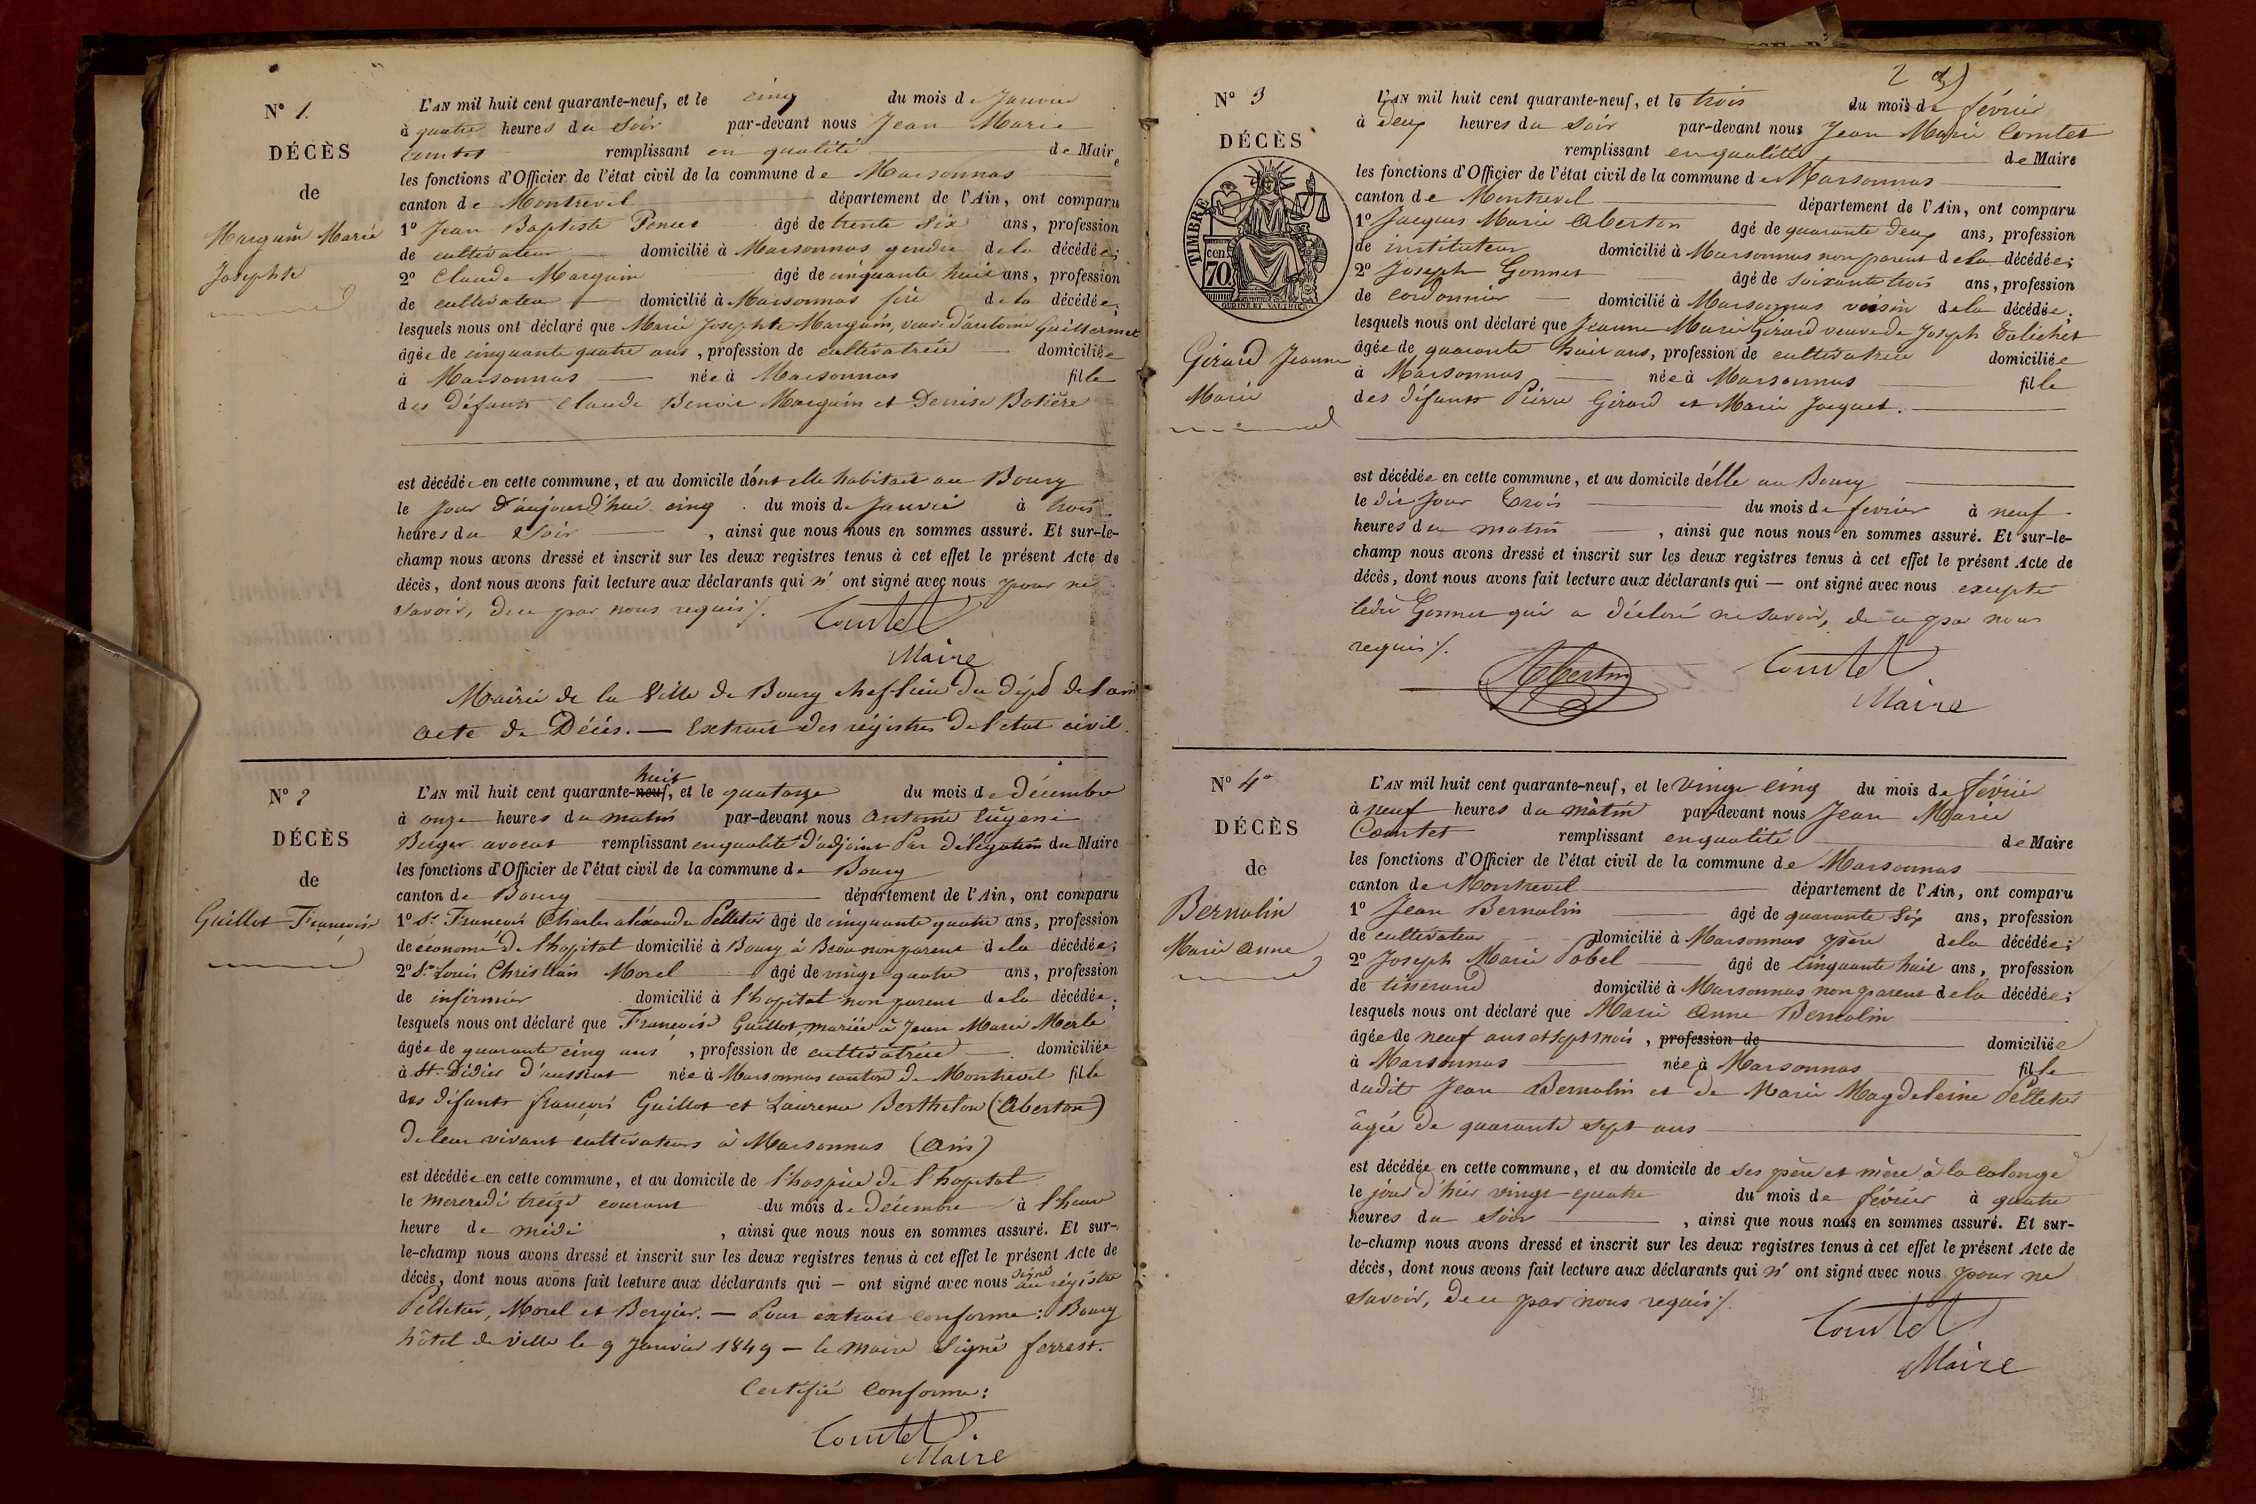 N° 1.
DÉCÈS
de
Marguin Marie
Josephte
L'AN mil huit cent quarante-neuf, et le cinq du mois de Janvier
à quatre heures du Soir par-devant nous Jean Marie
Comtet remplissant en qualité de Maire
les fonctions d'Officier de l'état civil de la commune de Marsonnas
canton de Montrevel département de l'Ain, ont comparu
1° Jean Baptiste Poncet âgé de trente Six ans, profession
de cultivateur domicilié à Marsonnas gendre de la décédée;
2° Claude Marguin âgé de cinquante huit ans, profession
de cultivateur domicilié à Marsonnas frère de la décédée;
lesquels nous ont déclaré que Marie Josephte Marguin, veuve d'antoine Guillermet
âgée de cinquante quatre ans, profession de cultivatrice domiciliée
à Marsonnas née à Marsonnas fille
des défunts Claude Benoit Marguin et Denise Botière
est décédée en cette commune, et au domicile dont elle habitait au Bourg
le Jour d'aujourd'hui cinq du mois de Janvier à trois
heures du Soir, ainsi que nous nous en sommes assuré. Et sur-le-
champ nous avons dressé et inscrit sur les deux registres tenus à cet effet le présent Acte de
décès, dont nous avons fait lecture aux déclarants qui n' ont signé avec nous pour ne
savoir, de ce par nous requis /.
Comtet
Maire
Mairie de la Ville de Bourg chef-lieu du dépt de l'ain
acte de Décès. — Extrait des régistres de l'état civil.
N° 2
DÉCÈS
de
Guillot Françoise
huit
L'AN mil huit cent quarante-neuf, et le quatorze du mois de décembre
à onze heures du matin par-devant nous Antoine Eugène
Bergier avocat remplissant en qualité d'adjoint Par délégation du Maire
les fonctions d'Officier de l'état civil de la commune de Bourg
canton de Bourg département de l'Ain, ont comparu
1° Sr. François Charles aléxandre Pelletier âgé de cinquante quatre ans, profession
de econome de l'hopital domicilié à Bourg à Brou non parent de la décédée;
2° Sr. Louis Christian Morel âgé de vingt quatre ans, profession
de infirmier domicilié à l'hopital non parent de la décédée;
lesquels nous ont déclaré que Françoise Guillot, mariée à Jean Marie Merle
âgée de quarante cinq ans, profession de cultivatrice domiciliée
à St. Didier d'aussiat née à Marsonnas canton de Montrevel fille
des défunts françois Guillot et Laurence Berthelon (Aberton)
de leur vivant cultivateurs à Marsonnas (Ain)
est décédée en cette commune, et au domicile de l'hospice de l'hopital
le mercredi treize courant du mois de décembre à l'heure
heure de midi, ainsi que nous nous en sommes assuré. Et sur-
le-champ nous avons dressé et inscrit sur les deux registres tenus à cet effet le présent Acte de
décès, dont nous avons fait lecture aux déclarants qui — ont signé avec nous signé au régistre
Pelletier, Morel et Bergier. — Pour extrait conforme: Bourg
hôtel de ville le 9 Janvier 1849 — le maire Signé ferrest.
Certifié Conforme:
Comtet
Maire
2
N° 3
DÉCÈS
TIMBRE
70 cen.
Girard Jeanne
Marie
L'AN mil huit cent quarante-neuf, et le trois du mois de février
à deux heures du soir par-devant nous Jean Marie Comtet
remplissant en qualité de Maire
les fonctions d'Officier de l'état civil de la commune de Marsonnas
canton de Montrevel département de l'Ain, ont comparu
1° Jacques Marie Aberton âgé de quarante deux ans, profession
de instituteur domicilié à Marsonnas non parent de la décédée;
2° Joseph Gonnet âgé de soixante trois ans, profession
de cordonnier domicilié à Marsonnas voisin de la décédée;
lesquels nous ont déclaré que Jeanne Marie Girard veuve de Joseph Talichet
âgée de quarante huit ans, profession de cultivatrice domiciliée
à Marsonnas née à Marsonnas fille
des défunts Pierre Girard et Marie Jacquet.
est décédée en cette commune, et au domicile d'elle au Bourg
le dit Jour trois du mois de février à neuf
heures du matin, ainsi que nous nous en sommes assuré. Et sur-le-
champ nous avons dressé et inscrit sur les deux registres tenus à cet effet le présent Acte de
décès, dont nous avons fait lecture aux déclarants qui — ont signé avec nous excepté
ledit Gonnet qui a déclaré ne savoir, de ce par nous
requis /.
Aberton
Comtet
Maire
N° 4°
DÉCÈS
de
Bernolin
Marie Anne
L'AN mil huit cent quarante-neuf, et le vingt cinq du mois de février
à neuf heures du matin par-devant nous Jean Marie
Comtet remplissant en qualité de Maire
les fonctions d'Officier de l'état civil de la commune de Marsonnas
canton de Montrevel département de l'Ain, ont comparu
1° Jean Bernolin âgé de quarante Six ans, profession
de cultivateur domicilié à Marsonnas père de la décédée;
2° Joseph Marie Pobel âgé de cinquante huit ans, profession
de tisserand domicilié à Marsonnas non parent de la décédée;
lesquels nous ont déclaré que Marie Anne Bernolin
âgée de neuf ans et sept mois, profession de domiciliée
à Marsonnas née à Marsonnas fille
dudit Jean Bernolin et de Marie Magdeleine Pelletier
âgée de quarante sept ans
est décédée en cette commune, et au domicile de ses père et mère à la Calonge
le jour d'hier vingt quatre du mois de février à quatre
heures du soir, ainsi que nous nous en sommes assuré. Et sur-
le-champ nous avons dressé et inscrit sur les deux registres tenus à cet effet le présent Acte de
décès, dont nous avons fait lecture aux déclarants qui n' ont signé avec nous pour ne
savoir, de ce par nous requis /.
Comtet
Maire